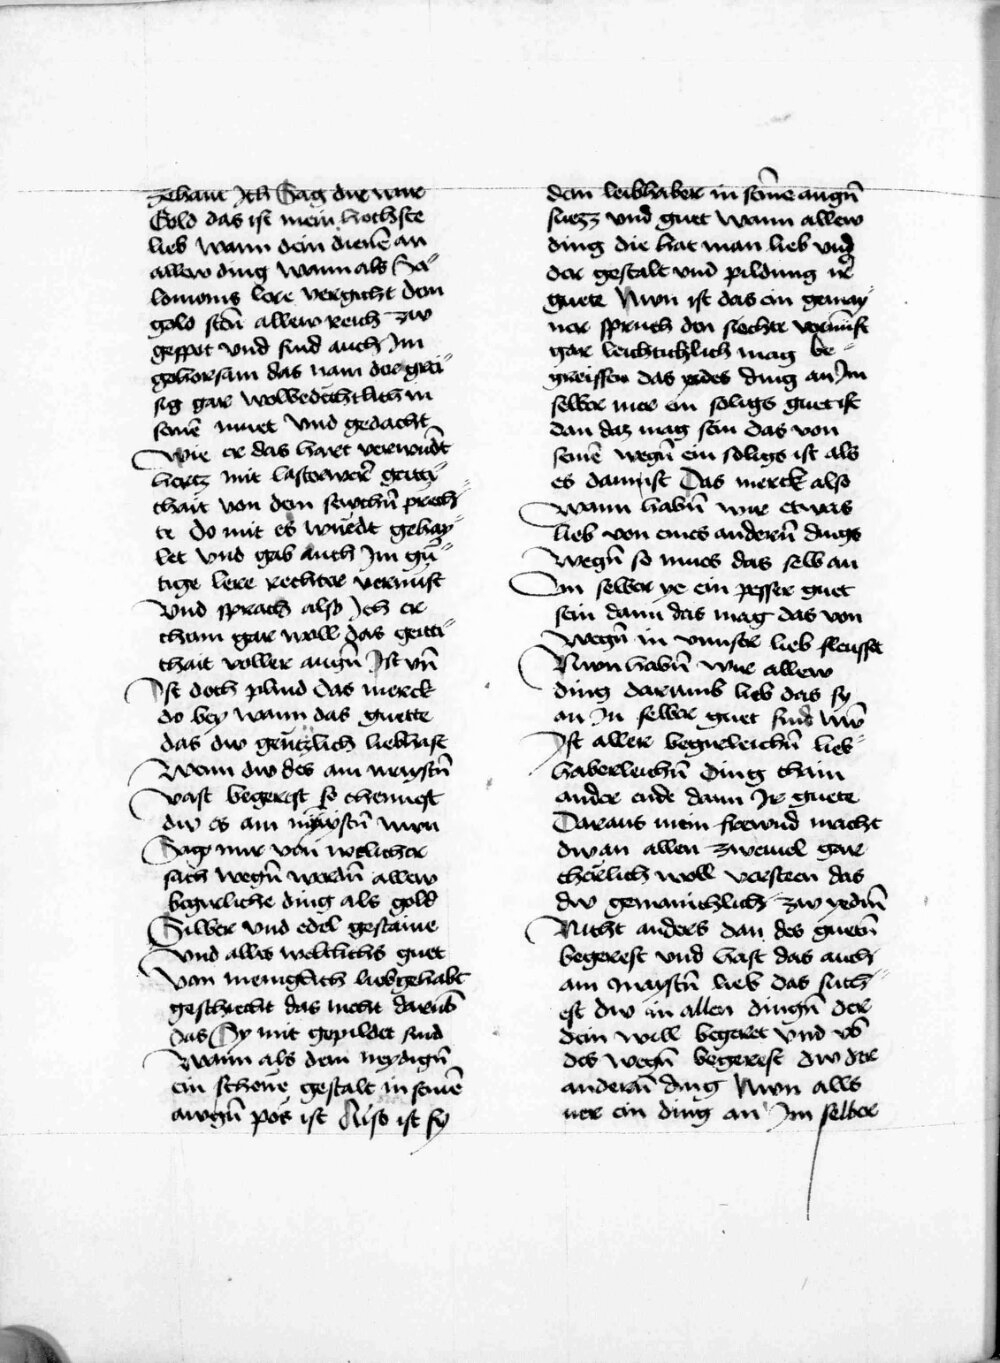 zehant Ich Sag dir war
Gold das ist mein hochste
lieb Wann dem dienē an
allew ding Wann als Sa-
lomonis lere vergicht dem
gold sein allew reich zw
gespot vnd sind auch Im
gehorsam das nam der grei-
sig gar wolbedechtlich in
seinē muet vnd gedacht
Wie er das hart verwūdt
hertz mit lasterwerē geittig-
chait von dem sewchn̄ prech-
te do mit es wuedt gehay-
let vnd gab auch Im gū-
tige lere rechter vernuft
Vnd sprach also Ich er
chenn gar woll das geitti-
chait voller augn̄ Ist vn̄
Ist doch plind Das merck
do bey wann das guette
das dw genczlich liebhast
Wenn dw des am maystn̄
vast begerest so chennest
dw es am mynstn̄ Nwn
Sag mir von welicher
sach wegn̄ werdn̄ allew
begirliche ding als gold
Silber vnd edel gestaine
vnd alles weltlichs guet
Von meniglich liebgehabt
geschiecht das nicht darūb
das Sy mit gepildet sind
Wann als dem neydign̄
ein schone gestalt in seinē
awgn̄ pos ist Also ist sy
dem leibhaber in seine augn̄
suezz vnd guet Wann allew
ding die hat man lieb vnd
der gestalt vnd pildung ir
guete Nwn ist das ein gemay-
ner spruch den siechte vernuft
gar leichtichlich mag be-
greiffen das yedes ding an Im
selber mer ein soligs guet ist
dan daz mag sein das von
seinē wegn̄ ein soligs ist als
es dann ist Das merck also
Wann habn̄ wir etwas
lieb von eines anderen̄ dings
Wegn̄ so mues das selb an
Im selber ye ein pesser guet
sein dann das mag das von
Wegn̄ in vnnser lieb fleusset
Nwn habn̄ wir allew
ding darumb lieb das sy
an In selber guet sind Nw̄
Ist aller begirleichn̄ lieb-
haberleichn̄ Ding chain
ander ende dann Ir guete
Daraus mein frewnd macht
dw an allen zweiuel gar
cherlich woll versteen das
dw gemainchlich zw yedm̄
Nicht anders dan des guetn̄
begerest vnd hast das auch
am maystn̄ lieb das such-
est dw in allen dingn̄ der
dein will begeret vnd vō
des wegn̄ begerest dw der
anderen̄ ding Nwn alls
uer ein ding an Im selber